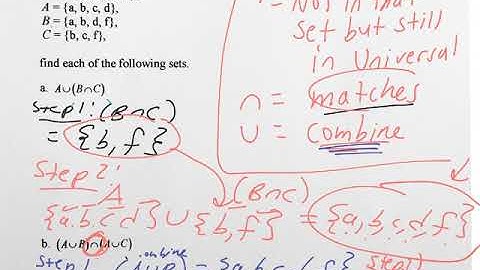 A = {a, b, c, d},
B = {a, b, d, f},
C = {b, c, f},
find each of the following sets.
a. A∪(B∩C)
Step 1: (B∩C)
= {b, f}
Step 2:
A
(B∩C)
{a, b, c, d} ∪ {b, f} = {a, b, c, d, f}
b. (A∪B)∩(A∪C)
combine
Step 1 (A∪B) = {a b c d f
Step 1)
= Not in that
set but still
in Universal
∩ = matches
∪ = combine